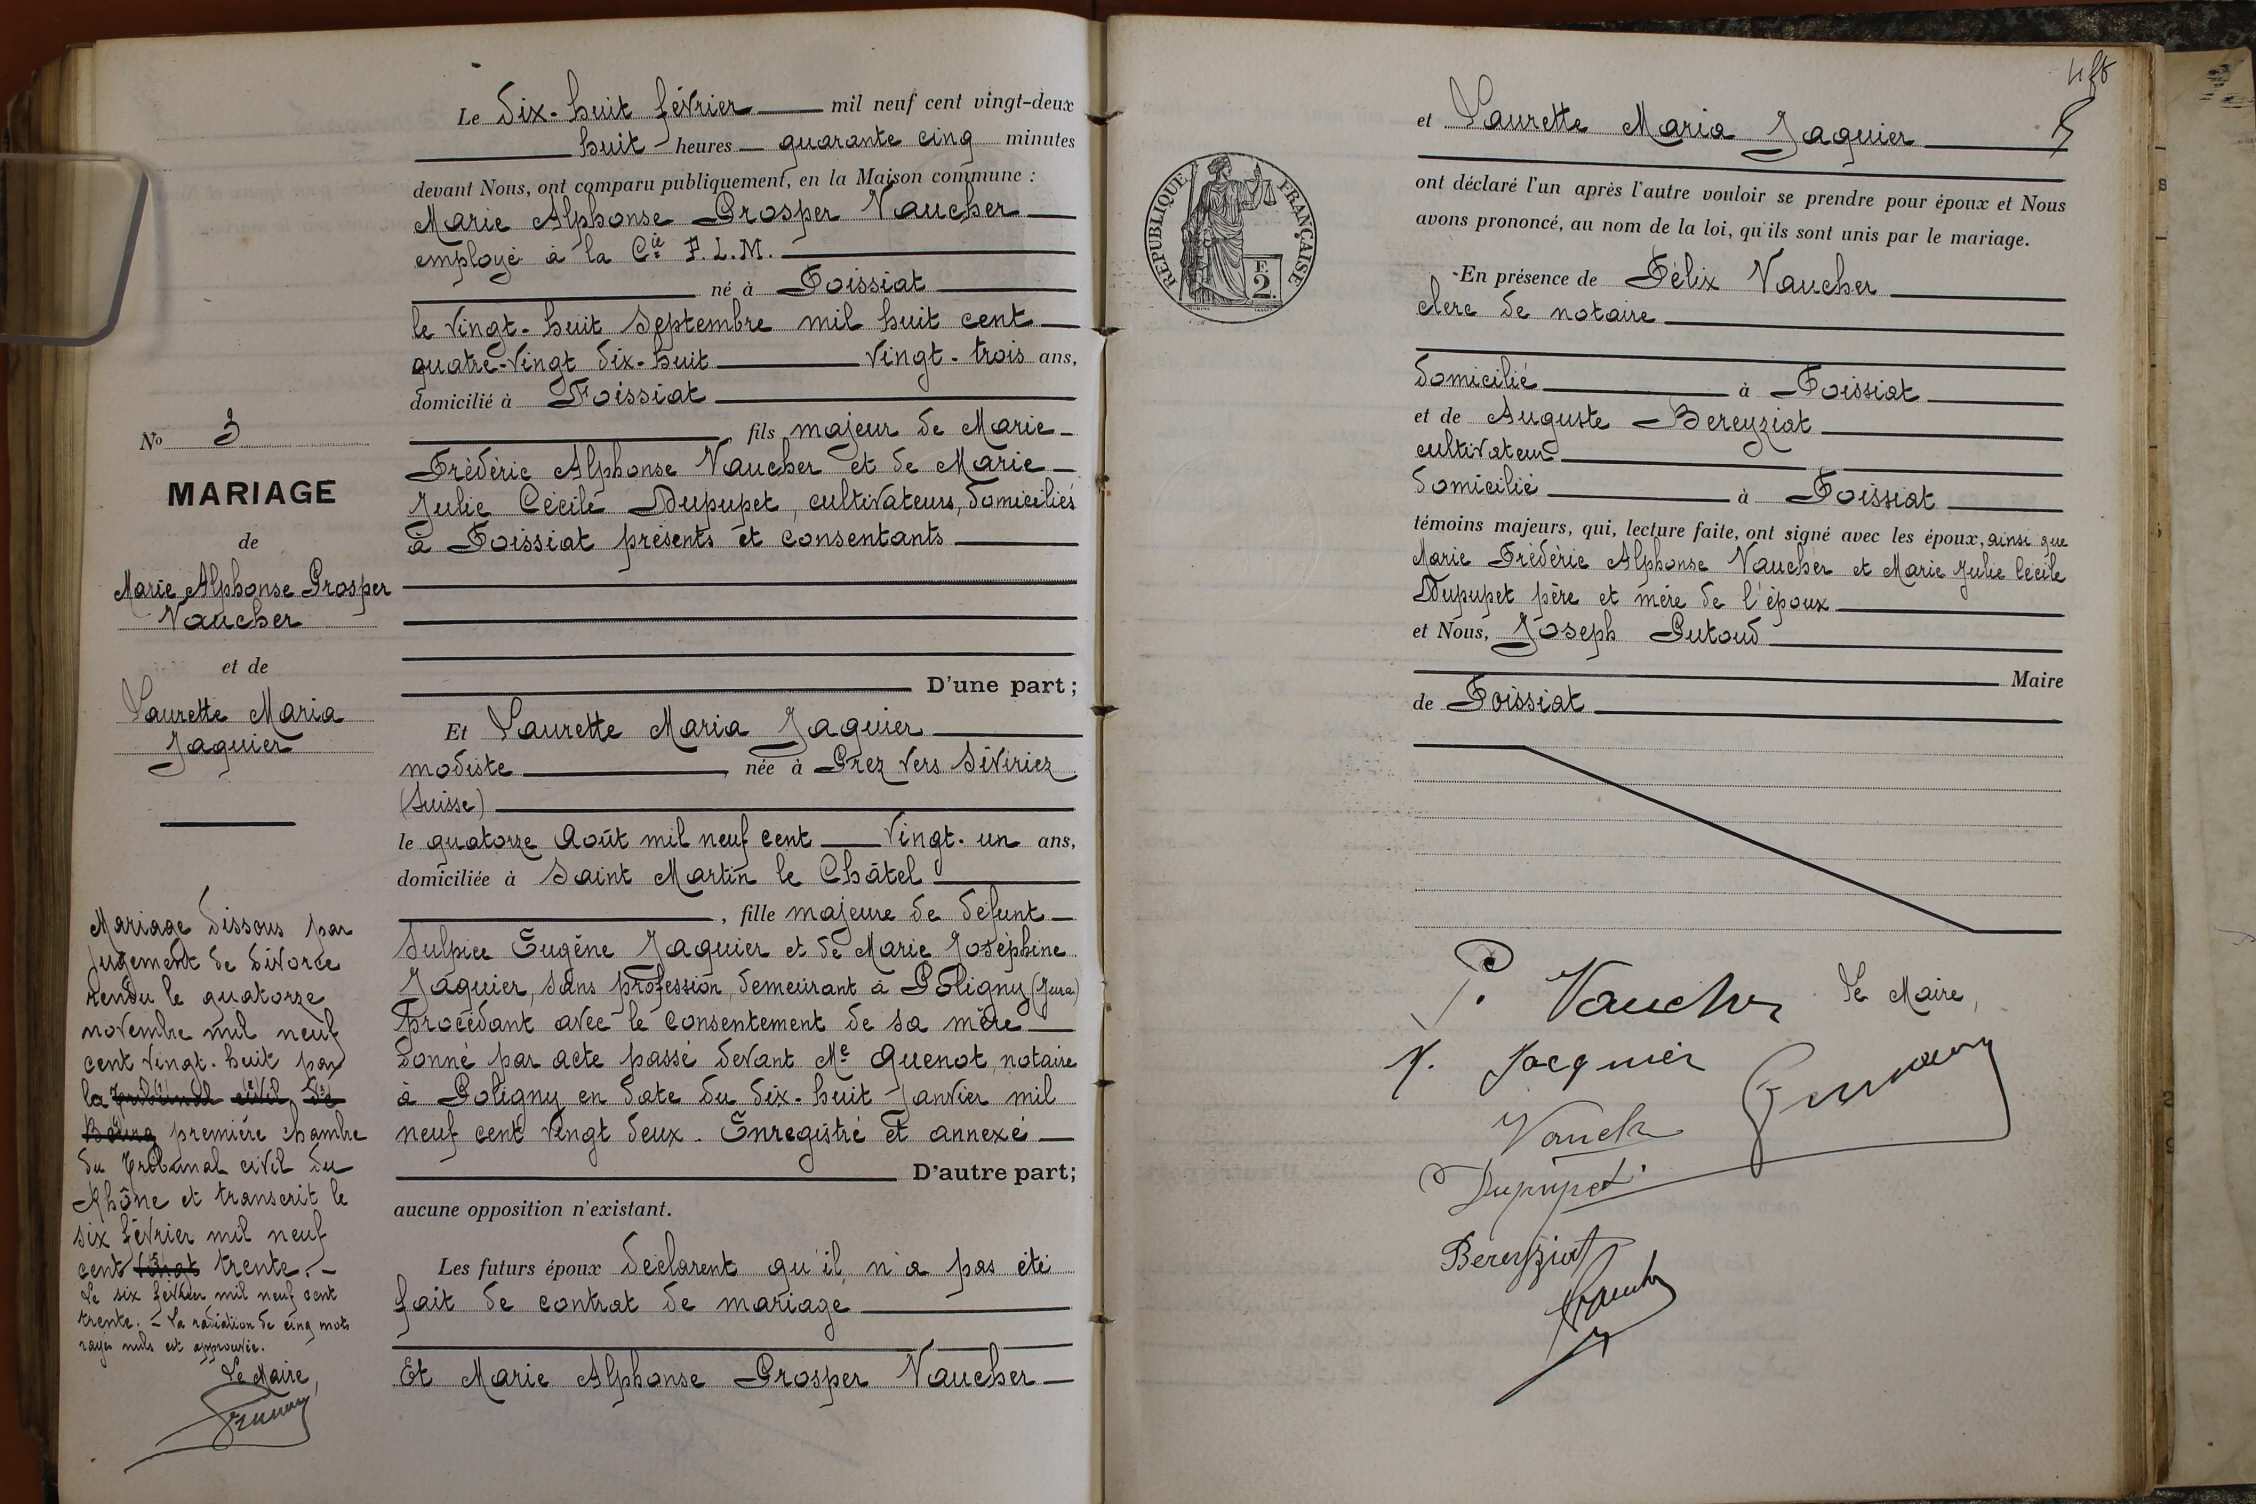 Le dix-huit février mil neuf cent vingt-deux
huit heures quarante cinq minutes
devant Nous, ont comparu publiquement, en la Maison commune :
Marie Alphonse Prosper Vaucher
employé à la Cie P.L.M.
né à Foissiat
le vingt-huit Septembre mil huit cent
quatre-vingt dix-huit vingt-trois ans,
domicilié à Foissiat
fils majeur de Marie
Frédéric Alphonse Vaucher et de Marie
Julie Cécile Dupupet, cultivateurs, domiciliés
à Foissiat présents et consentants
D'une part ;
Et Laurette Maria Jaquier
modiste, née à Prez vers Siviriez
(Suisse)
le quatorze Août mil neuf cent vingt-un ans,
domiciliée à Saint Martin le Châtel
, fille majeure de défunt
Sulpice Eugène Jaquier et de Marie Joséphine
Jaquier, sans profession, demeurant à Poligny (Jura)
Procédant avec le consentement de sa mère
donné par acte passé devant Me Quenot, notaire
à Poligny en date du dix-huit Janvier mil
neuf cent vingt deux. Enregistré et annexé
D'autre part;
aucune opposition n'existant.
Les futurs époux déclarent qu'il n'a pas été
fait de contrat de mariage
Et Marie Alphonse Prosper Vaucher
No 3
MARIAGE
de
Marie Alphonse Prosper
Vaucher
et de
Laurette Maria
Jaquier
Mariage dissous par
jugement de divorce
rendu le quatorze
novembre mil neuf
cent vingt-huit par
la tribunal civil de
Bourg première chambre
du Tribunal civil du
Rhône et transcrit le
six février mil neuf
cent vingt trente.
Le six février mil neuf cent
trente. - La radiation de cinq mots
rayés nuls est approuvée.
Le Maire,
et Laurette Maria Jaquier
ont déclaré l'un après l'autre vouloir se prendre pour époux et Nous
avons prononcé, au nom de la loi, qu'ils sont unis par le mariage.
RÉPUBLIQUE FRANÇAISE
F.
2
En présence de Félix Vaucher
clerc de notaire
domicilié à Foissiat
et de Auguste Bereyziat
cultivateur
domicilié à Foissiat
témoins majeurs, qui, lecture faite, ont signé avec les époux, ainsi que
Marie Frédéric Alphonse Vaucher et Marie Julie Cécile
Dupupet père et mère de l'époux
et Nous, Joseph Putoud
Maire
de Foissiat
P. Vaucher
Le Maire,
Jacquier
Dupupet
Bereyziat